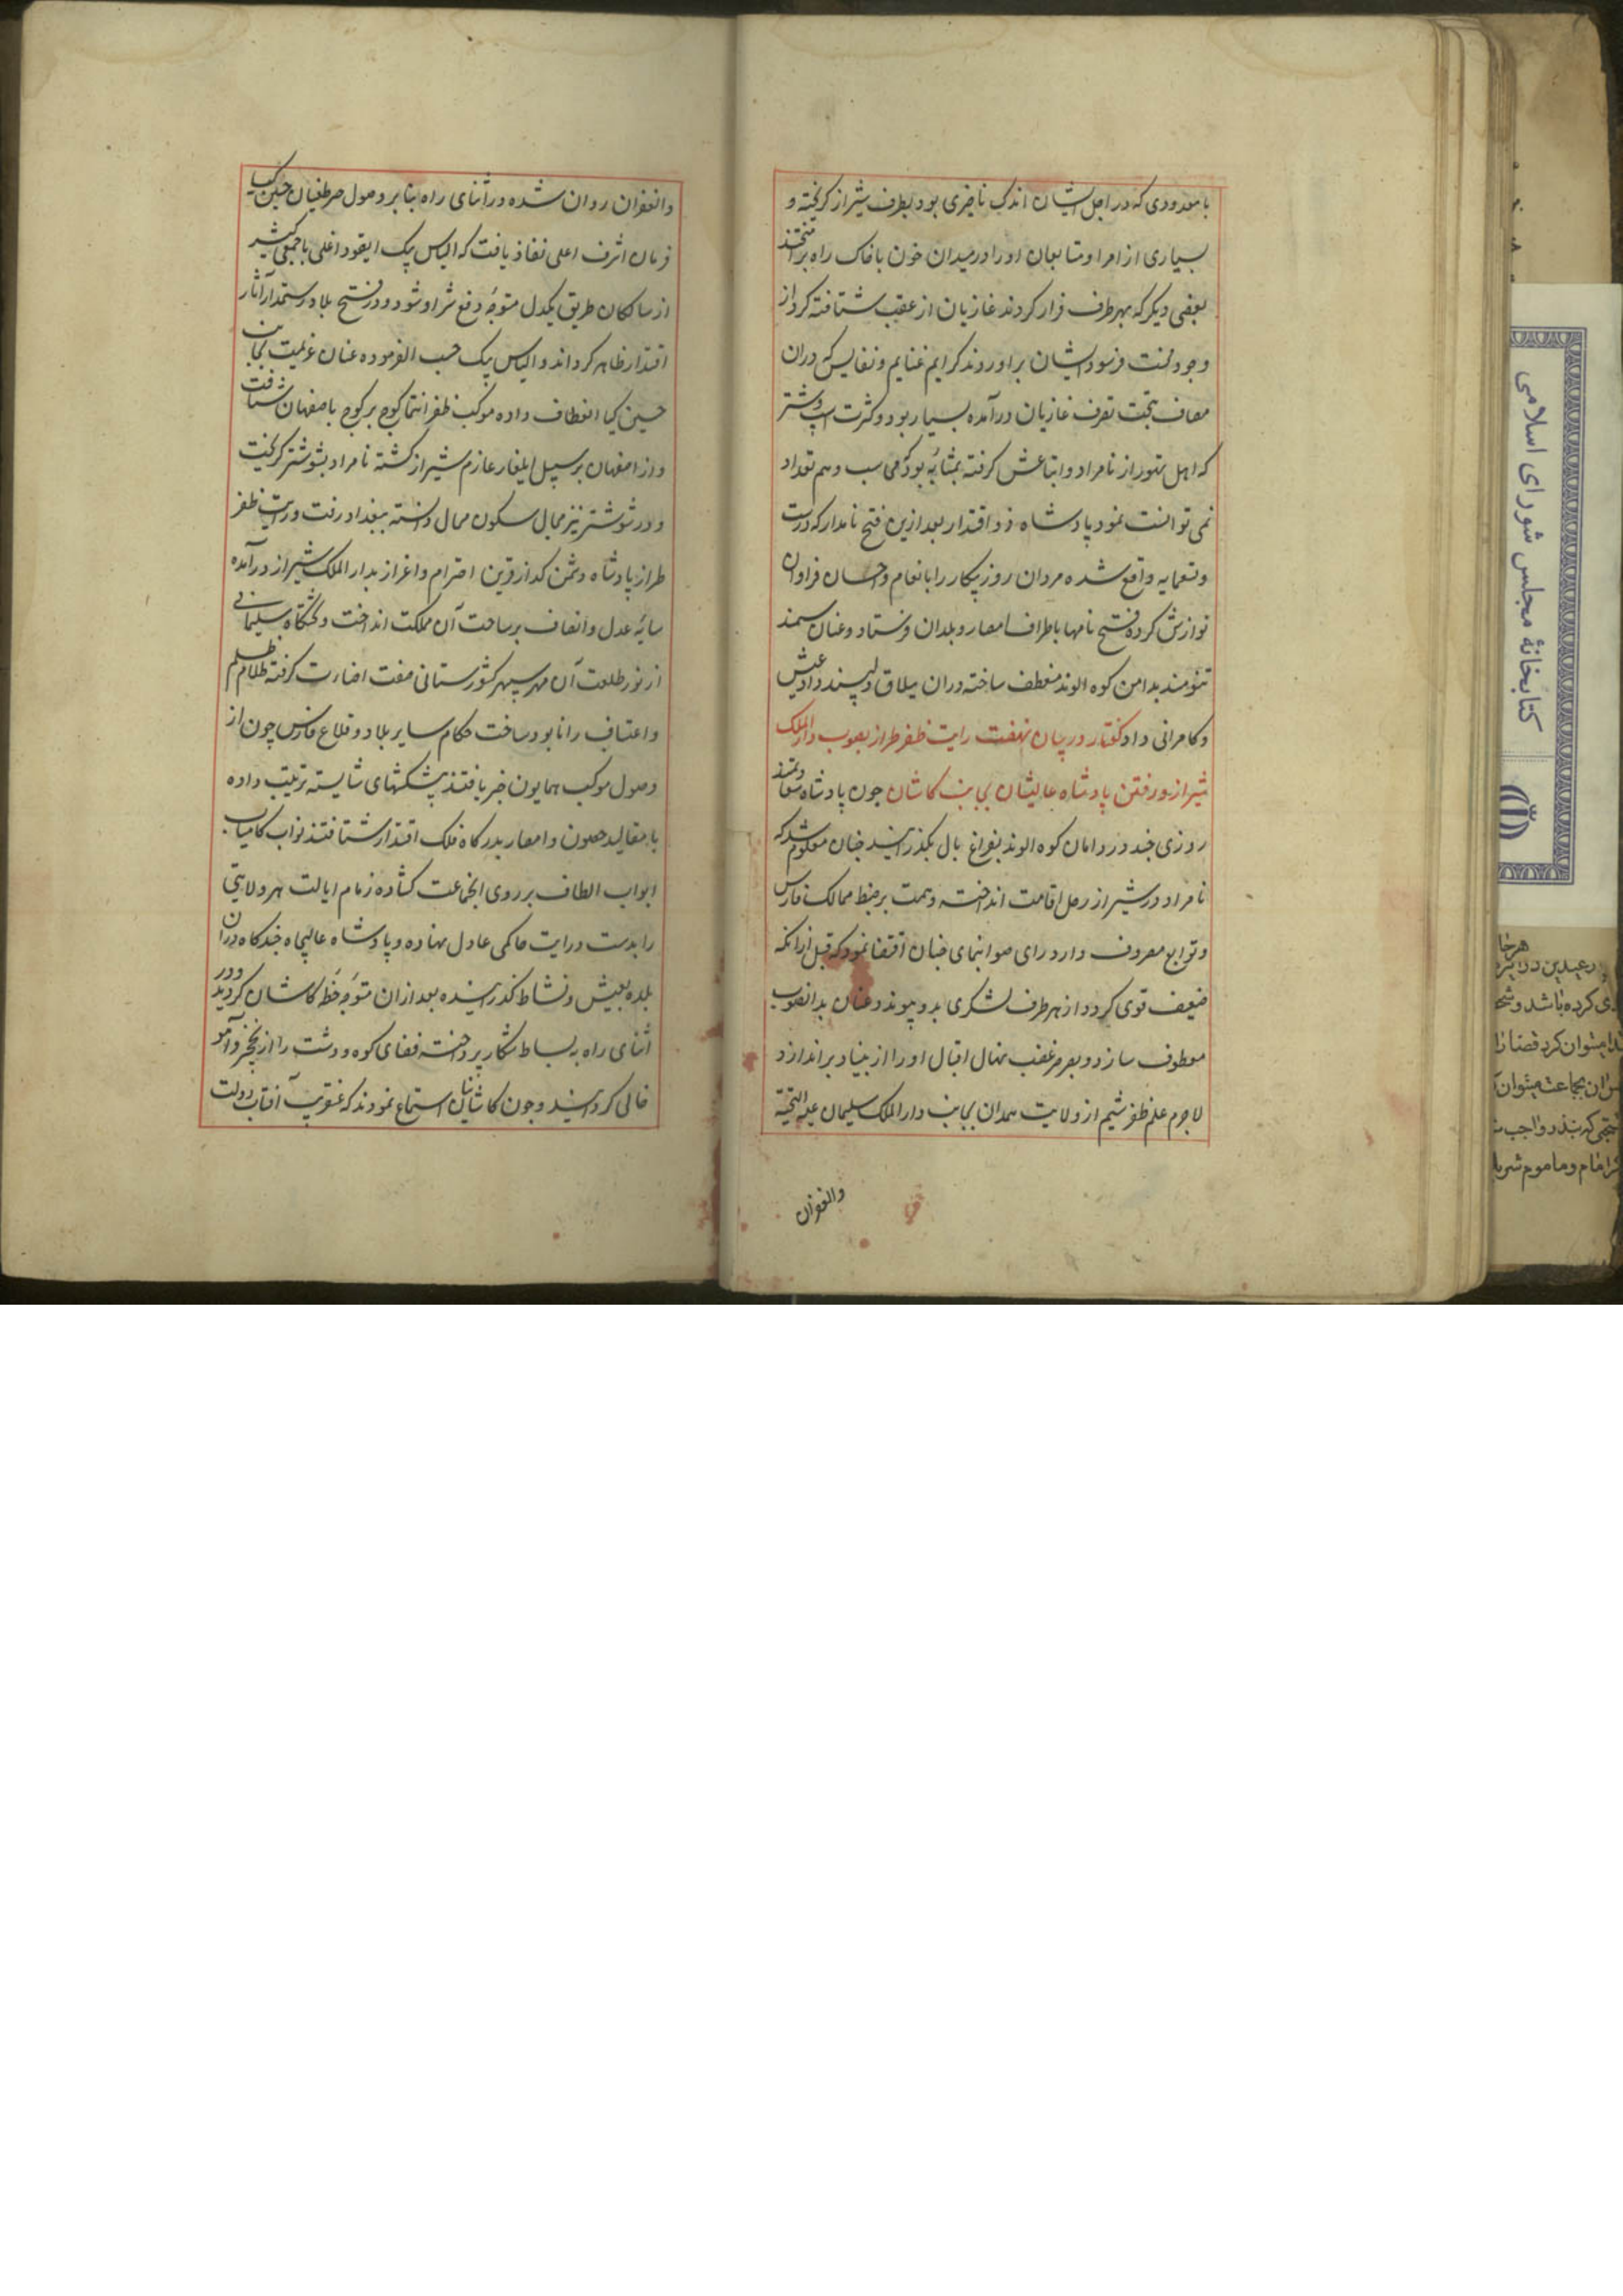 با معدودی که در اجل ایشان اندک تاخیری بود بطرف شیراز کریخته و
بسیاری از امرا و متابعان او را در میدان خون با خاک راه برآمیختند
بعضی دیکر که بهر طرف فرار کردند غازیان از عقب شتافته کرد از
وجود محنت فرسود ایشان براوردند کرایم غنایم و نفایس که دران
مصاف بتحت تصرف غازیان درآمده بسیار بود و کثرت اسب و شتر
که اهل تهور از نامراد و اتباعش کرفته بمثابهٔ بود که محاسب وهم تعداد
نمی توانست نمود پادشاه ذو اقتدار بعد ازین فتح نامدار که در ست
و تسعمایه واقع شده مردان روز پیکار را بانعام و احسان فراوان
نوازش کرده فتح نامها باطراف امصار و بلدان فرستاد و عنان سمند
تنومند بدامن کوه الوند منعطف ساخته دران ییلاق دلپسند داد عیش
و کامرانی داد کفتار در بیان نهضت رایت ظفر طراز بصوب دار الملک
شیراز و رفتن پادشاه عالیشان بجانب کاشان چون پادشاه سعادتمند
روزی چند در دامان کوه الوند بفراغ بال بکذرانید چنان معلوم شد که
نامراد در شیراز رحل اقامت انداخته و همت بر ضبط ممالک فارس
و توابع مصروف دارد رای صوابنمای چنان اقتضا نمود که قبل ازانکه
ضعیف قوی کردد از هر طرف لشکری بدو پیوندد عنان بدانصوب
معطوف سازد و بصرصر غضب نهال اقبال او را از بنیاد براندازد
لاجرم علم ظفر شیم از ولایت همدان بجانب دار الملک سلیمان علیه التحیة
والغفران
والغفران روان شده در اثنای راه بنا بر وصول خبر طغیان حسین کیا
فرمان اشرف اعلی نفاذ یافت که الیاس بیک ایقود اغلی با جمعی کثیر
از سالکان طریق یکدل متوجه دفع شر او شود و در فتح بلاد رستمدار آثار
اقتدار ظاهر کرداند و الیاس بیک حسب الفرموده عنان عزیمت بجانب
حسین کیا انعطاف داده موکب ظفر انتما کوچ بر کوچ باصفهان شتافت
و از اصفهان بر سبیل ایلغار عازم شیراز کشته نامراد بشوشتر کریخت
و در شوشتر نیز مجال سکون محال دانسته ببغداد رفت و رایت ظفر
طراز پادشاه دشمن کداز قرین احترام و اعزاز بدار الملک شیراز درآمده
سایهٔ عدل و انصاف بر ساحت آن مملکت انداخت و تختکاه سلیمانی
از نور طلعت آن مهر سپهر کشورستانی صفت اضارت کرفته ظلام ظلم
و اعتساف را نابود ساخت حکام سایر بلاد و قلاع فارس چون از
وصول موکب همایون خبر یافتند پیشکشهای شایسته ترتیب داده
با مقالید حصون و امصار بدرکاه فلک اقتدار شتافتند نواب کامیاب
ابواب الطاف بر روی انجماعت کشاده زمام ایالت هر ولایتی
را بدست درایت حاکمی عادل نهاده و پادشاه عالیجاه چندکاه دران
بلده بعیش و نشاط کذرانیده بعد ازان متوجه خطهٔ کاشان کردید و در
اثنای راه به بساط شکار پرداخته فضای کوه و دشت را از نخجیر و آهو
خالی کردانید و چون کاشانیان استماع نمودند که عنقریب آفتاب دولت
کتابخانهٔ مجلس شورای اسلامی